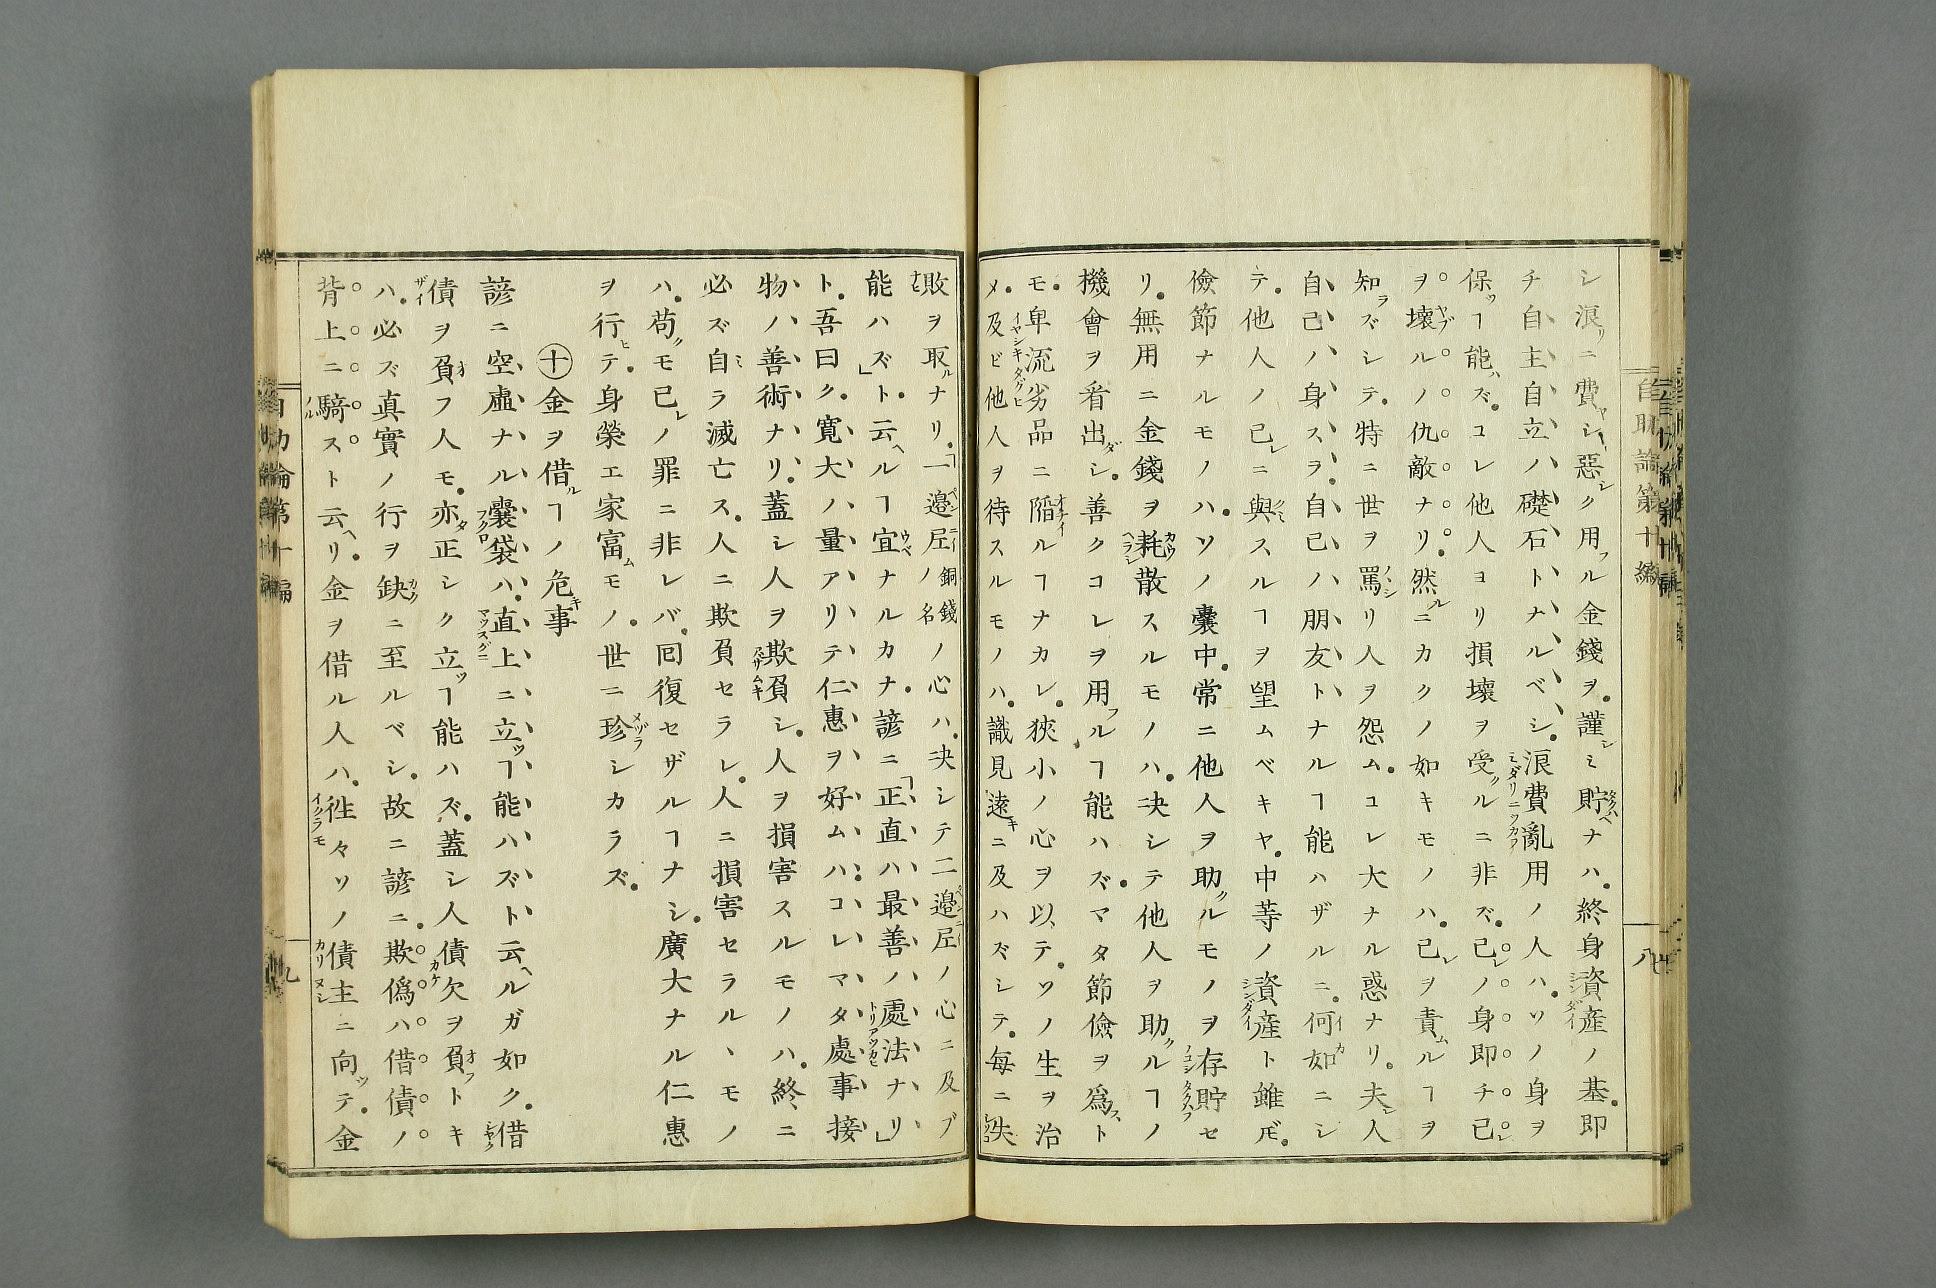 自助論第十編
八
シ浪リニ費ヤシ惡シク用フル金錢ヲ。謹シミ貯タクハヘナハ。終身資産シンダイノ基。即
チ自主自立ノ礎石トナルベシ。浪費亂用ミダリニツカフノ人ハ。ソノ身ヲ
保ツヿ能ハズ。コレ他人ヨリ損壞ヲ受クルニ非ズ。己レノ身即チ己レ
ヲ壞ヤブルノ仇敵ナリ。然ルニカクノ如キモノハ。己レヲ責ムルヿヲ
知ラズシテ。特ニ世ヲ罵ノヽシリ人ヲ怨ム。コレ大ナル惑ナリ。夫レ人
自己ハ身スヲ。自己ノ朋友トナルヿ能ハザルニ。何如イカニシ
テ。他人ノ己レニ與クミスルヿヲ望ムベキヤ。中等ノ資産シンダイト雖𪜈。
儉節ナルモノハ。ソノ嚢中。常ニ他人ヲ助クルモノヲ存貯ノコシタクハフセ
リ。無用ニ金錢ヲ耗散カウヘラシスルモノハ。决シテ他人ヲ助クルヿノ
機會ヲ看出ダシ。善クコレヲ用フルヿ能ハズ。マタ節儉ヲ爲スト
モ。卑流劣品イヤシキタグヒニ陷オチイルヿナカレ。狹小ノ心ヲ以テ。ソノ生ヲ治
メ。及ビ他人ヲ待スルモノハ。識見遠キニ及ハズシテ。毎ニ失シツ
敗ヲ取ルナリ。「一邊尼ペンニイ銅錢ノ名ノ心ハ。决シテ二邊尼ペンニイノ心ニ及ブ
能ハズ」ト。云ヘルヿ宜ウベナルカナ。諺ニ「正直ハ最善ノ處法トリアツカヒナリ」
ト。吾曰ク。寛大ノ量アリテ仁惠ヲ好ムハ。コレマタ處事接
物ノ善術ナリ。蓋シ人ヲ欺負アザムキシ。人ヲ損害スルモノハ。終ニ
必ズ自ミラ滅亡ス。人ニ欺負セラレ。人ニ損害セラルヽモノ
ハ。苟クモ己レノ罪ニ非レバ。囘復セザルヿナシ。廣大ナル仁惠
ヲ行ヒテ。身榮エ家富ムモノ。世ニ珍メヅラシカラズ。
㊉金ヲ借ルヿノ危キ事
諺ニ空虚ナル嚢袋フクロハ。直上マツスグニニ立ツヿ能ハズト云ヘルガ如ク。借シヤク
債ザイヲ負オフ人モ。亦タ正シク立ツヿ能ハズ。蓋シ人債欠カケヲ負オフトキ
ハ。必ズ真實ノ行ヲ缺カクニ至ルベシ。故ニ諺ニ。欺僞ハ借債ノ
背上ニ騎ノルスト云ヘリ。金ヲ借ル人ハ。徃々イクラモソノ債主カリヌシニ向ツテ。金
自助論第十編
九